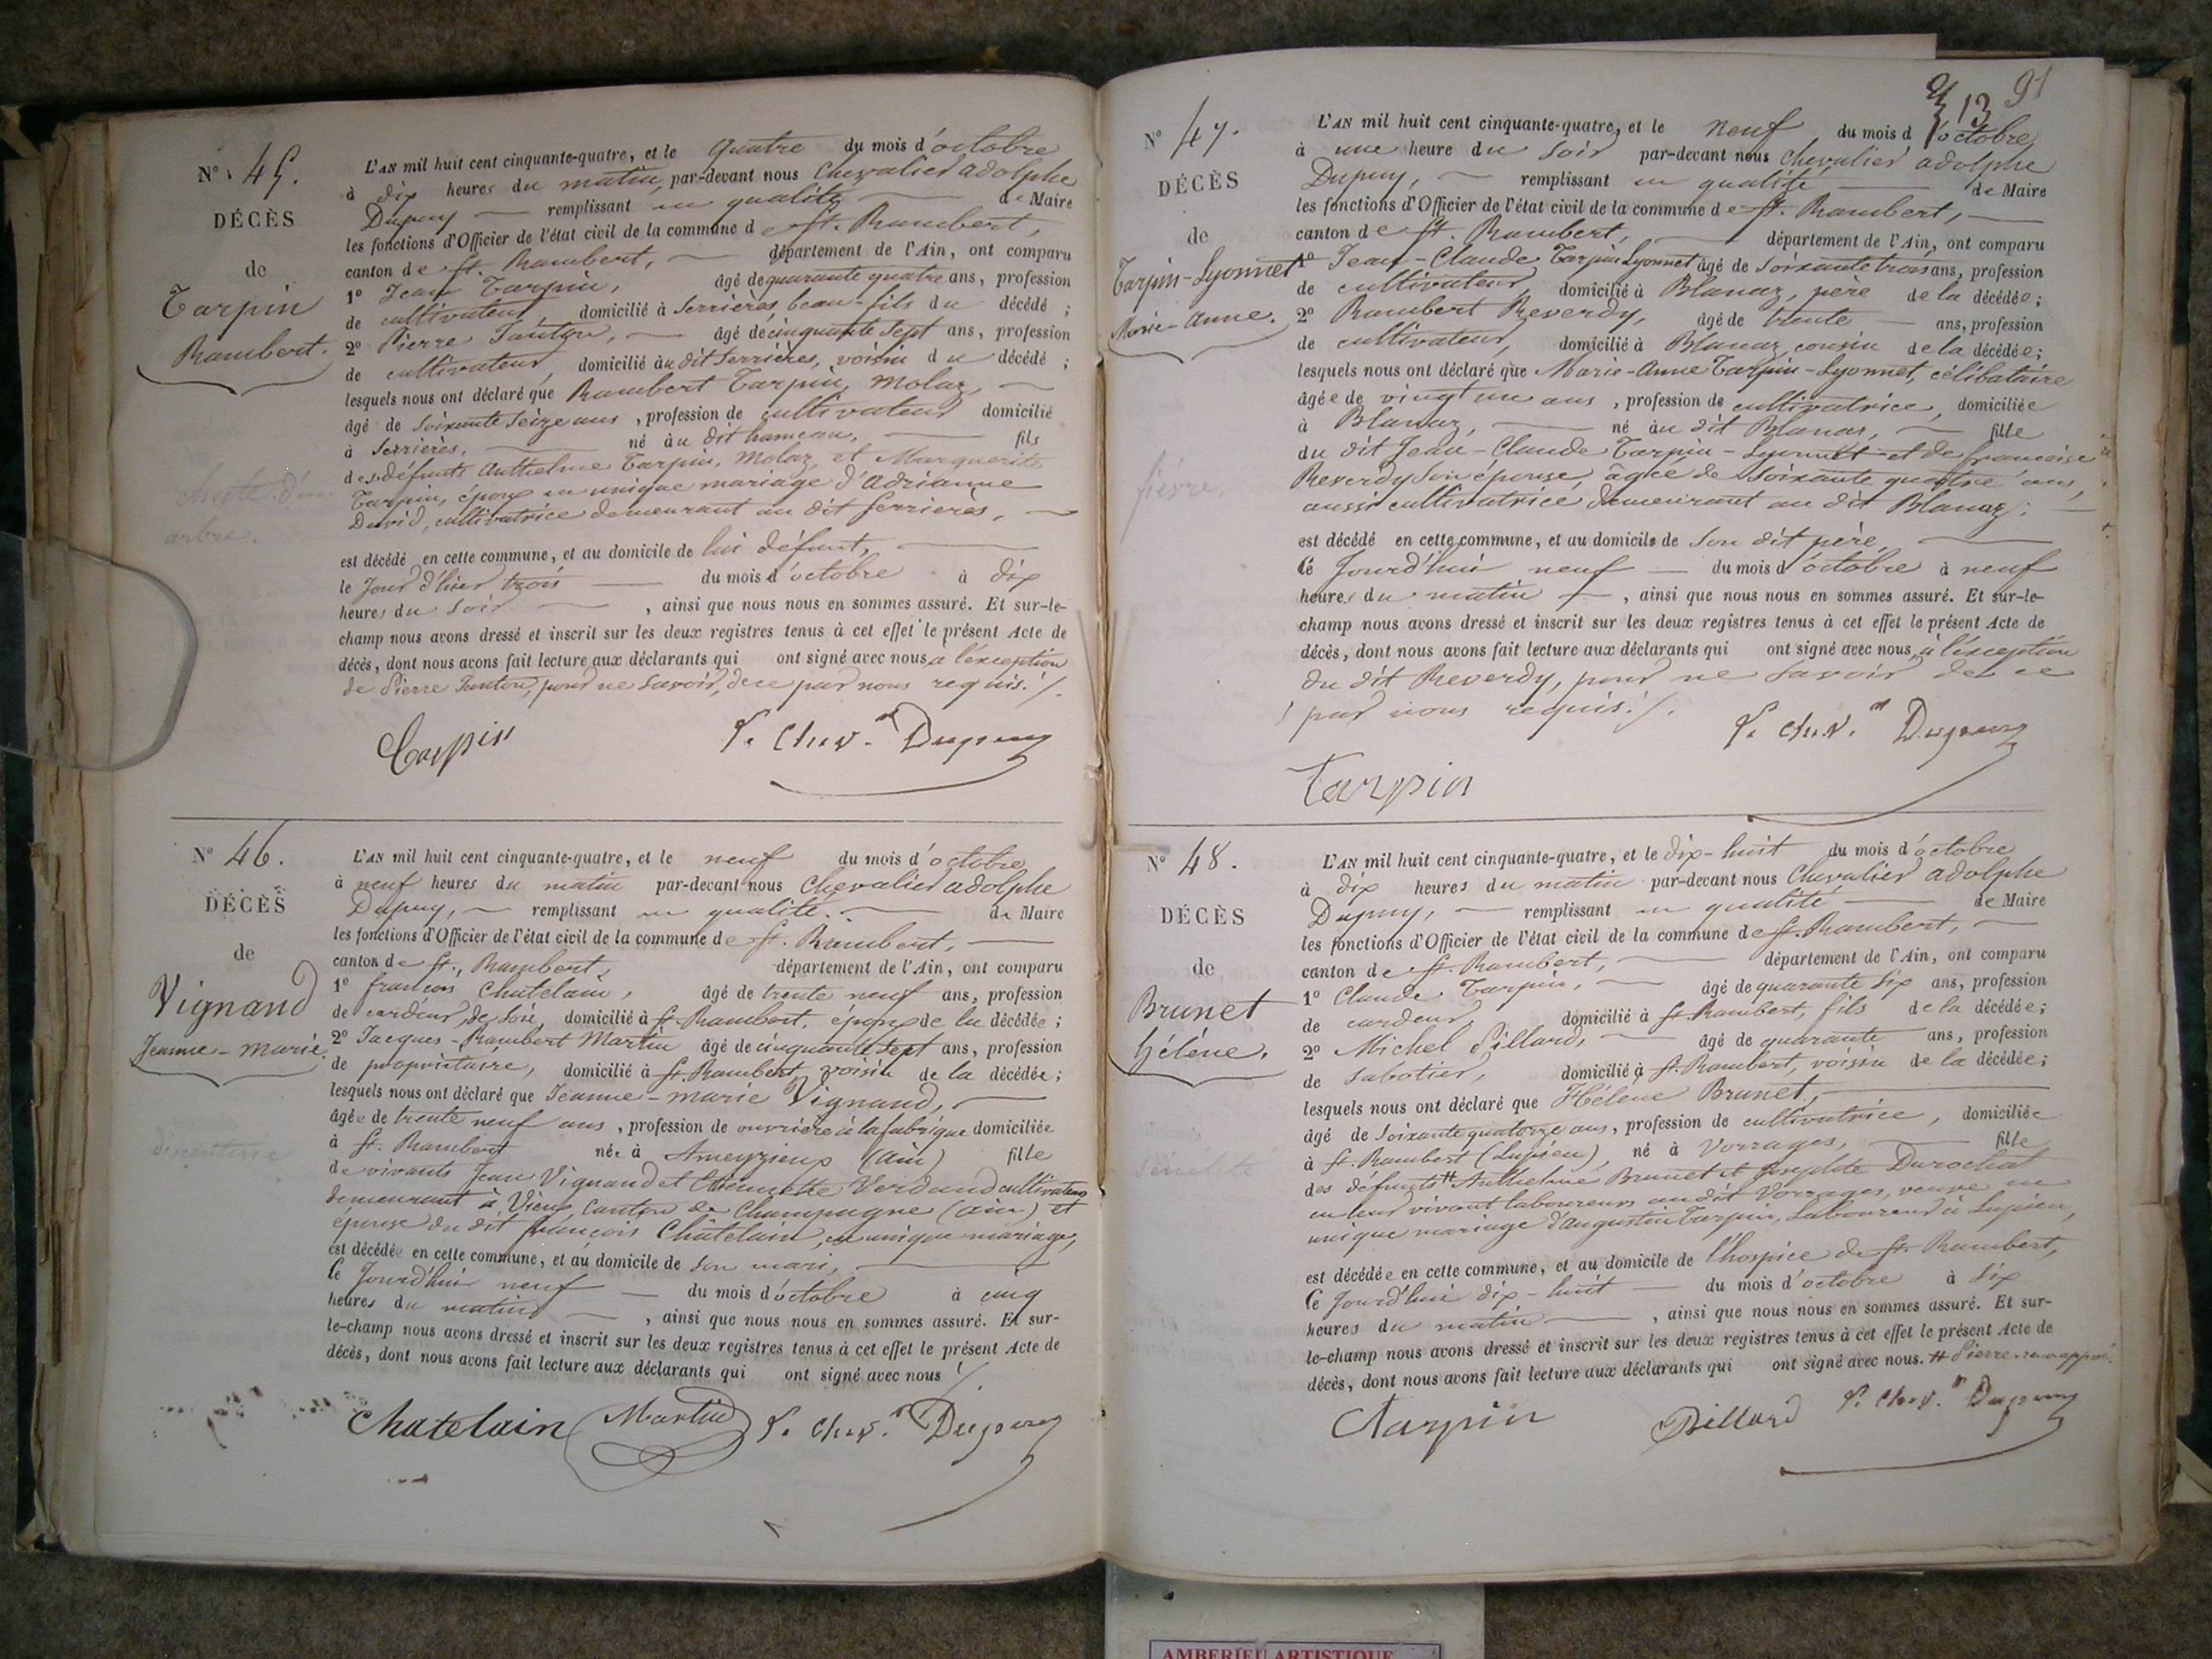 Nº 45.
DÉCÈS
de
Tarpin
Rambert.
chute d'un
arbre.
L'AN mil huit cent cinquante-quatre, et le quatre du mois d'octobre
à dix heures du matin, par-devant nous Chevalier adolphe
Dupuy remplissant en qualité de Maire
les fonctions d'Officier de l'état civil de la commune de St. Rambert,
canton de St. Rambert, département de l'Ain, ont comparu
1º Jean Tarpin, âgé de quarante quatre ans, profession
de cultivateur, domicilié à Serrières, beau-fils du décédé ;
2º Pierre Tanton, âgé de cinquante sept ans, profession
de cultivateur, domicilié au dit Serrières, voisin du décédé ;
lesquels nous ont déclaré que Rambert Tarpin, Molaz,
âgé de soixante seize ans, profession de cultivateur domicilié
à Serrières, né au dit hameau, fils
des défunts Anthelme Tarpin, Molaz, et Marguerite
Tarpin, époux en unique mariage d'Adrianne
David, cultivatrice demeurant au dit Serrières,
est décédé en cette commune, et au domicile de lui défunt,
le Jour d'hier trois du mois d'octobre à dix
heures du soir, ainsi que nous nous en sommes assuré. Et sur-le-
champ nous avons dressé et inscrit sur les deux registres tenus à cet effet le présent Acte de
décès, dont nous avons fait lecture aux déclarants qui ont signé avec nous à l'exception
de Pierre Tanton, pour ne savoir, de ce par nous requis./.
Tarpin P. Chev.er Dupuy
Nº 46.
DÉCÈS
de
Vignand
Jeanne-marie.
dissenterie
L'AN mil huit cent cinquante-quatre, et le neuf du mois d'octobre
à neuf heures du matin par-devant nous Chevalier adolphe
Dupuy, remplissant en qualité de Maire
les fonctions d'Officier de l'état civil de la commune de St. Rambert,
canton de St. Rambert, département de l'Ain, ont comparu
1º françois Chatelain, âgé de trente neuf ans, profession
de cardeur de soie, domicilié à St. Rambert, époux de la décédée ;
2º Jacques-Rambert Martin âgé de cinquante sept ans, profession
de propriétaire, domicilié à St. Rambert, voisin de la décédée ;
lesquels nous ont déclaré que Jeanne-marie Vignand,
âgée de trente neuf ans, profession de ouvrière à la fabrique domiciliée
à St. Rambert née à Ameyzieux (Ain) fille
de vivants Jean Vignand et Etiennette Verdand cultivateurs
demeurant à Vieux, Canton de Champagne (Ain) et
épouse du dit françois Châtelain, en unique mariage,
est décédée en cette commune, et au domicile de son mari,
le Jourd'hui neuf du mois d'octobre à cinq
heures du matin, ainsi que nous nous en sommes assuré. Et sur-
le-champ nous avons dressé et inscrit sur les deux registres tenus à cet effet le présent Acte de
décès, dont nous avons fait lecture aux déclarants qui ont signé avec nous ./.
Chatelain Martin P. Chev.er Dupuy
13 91
Nº 47.
DÉCÈS
de
Tarpin-Lyonnet
Marie-Anne.
fièvre.
L'AN mil huit cent cinquante-quatre, et le neuf du mois d'octobre
à une heure du soir par-devant nous Chevalier adolphe
Dupuy, remplissant en qualité de Maire
les fonctions d'Officier de l'état civil de la commune de St. Rambert,
canton de St. Rambert, département de l'Ain, ont comparu
1º Jean-Claude Tarpin Lyonnet âgé de soixante trois ans, profession
de cultivateur, domicilié à Blanaz, père de la décédée ;
2º Rambert Reverdy, âgé de trente ans, profession
de cultivateur, domicilié à Blanaz, cousin de la décédée ;
lesquels nous ont déclaré que Marie-Anne Tarpin-Lyonnet, célibataire
âgée de vingt un ans, profession de cultivatrice, domiciliée
à Blanaz, né au dit Blanaz, fille
du dit Jean-Claude Tarpin-Lyonnet et de françoise
Reverdy son épouse, âgée de soixante quatre ans,
aussi cultivatrice demeurant au dit Blanaz ;
est décédé en cette commune, et au domicile de son dit père,
Cé Jourd'hui neuf du mois d'octobre à neuf
heures du matin, ainsi que nous nous en sommes assuré. Et sur-le-
champ nous avons dressé et inscrit sur les deux registres tenus à cet effet le présent Acte de
décès, dont nous avons fait lecture aux déclarants qui ont signé avec nous, à l'exception
du dit Reverdy, pour ne savoir de ce
par nous requis./.
P. Chev.er Dupuy
Tarpin
Nº 48.
DÉCÈS
de
Brunet
hélène.
Sénelité
L'AN mil huit cent cinquante-quatre, et le dix-huit du mois d'octobre
à dix heures du matin par-devant nous Chevalier adolphe
Dupuy, remplissant en qualité de Maire
les fonctions d'Officier de l'état civil de la commune de St. Rambert,
canton de St. Rambert, département de l'Ain, ont comparu
1º Claude Tarpin, âgé de quarante six ans, profession
de cardeur, domicilié à St. Rambert, fils de la décédée ;
2º Michel Pillard, âgé de quarante ans, profession
de sabotier, domicilié à St. Rambert, voisin de la décédée ;
lesquels nous ont déclaré que Hélène Brunet,
âgé de soixante quatorze ans, profession de cultivatrice, domiciliée
à St. Rambert (Lupieu), né à Vorrages, fille
des défunts # Anthelme Brunet et Josephte Durochat
en leur vivant laboureurs au dit Vorrages, veuve en
unique mariage d'Augustin Tarpin, Laboureur à Lupieu,
est décédée en cette commune, et au domicile de l'hospice de St. Rambert,
Ce Jourd'hui dix-huit du mois d'octobre à six
heures du matin, ainsi que nous nous en sommes assuré. Et sur-
le-champ nous avons dressé et inscrit sur les deux registres tenus à cet effet le présent Acte de
décès, dont nous avons fait lecture aux déclarants qui ont signé avec nous. # Pierre
Tarpin Pillard P. Chev.er Dupuy
AMBERIEU ARTISTIQUE